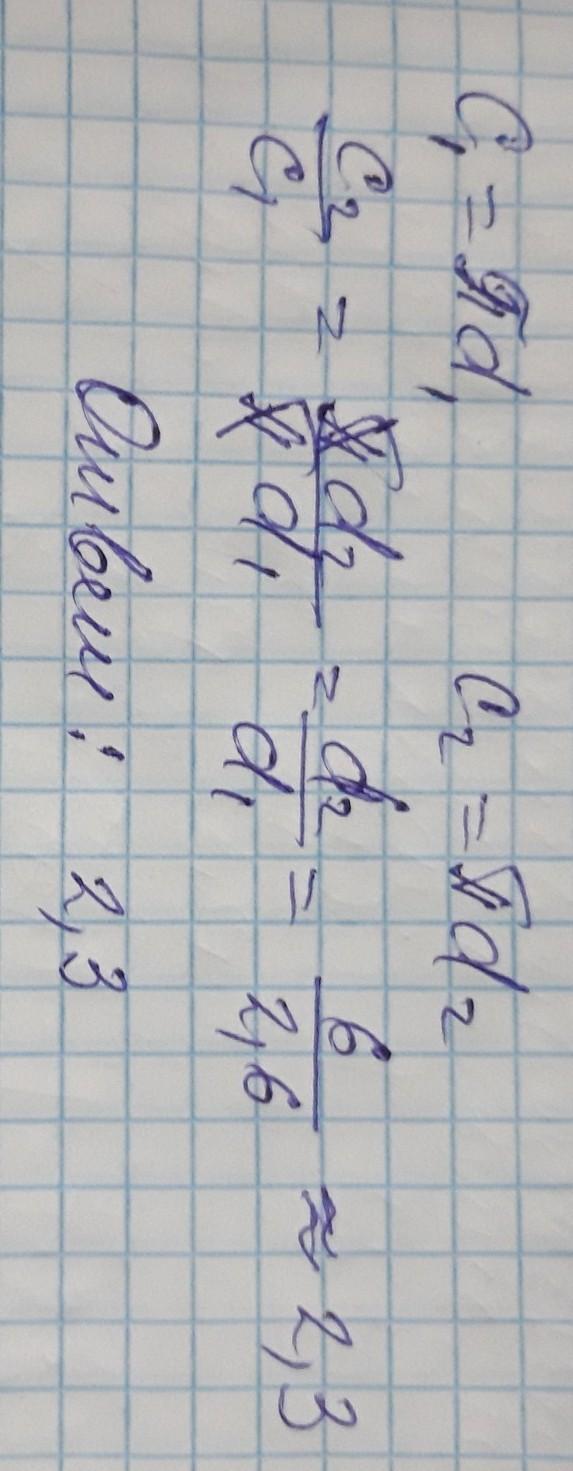 C₁ = πd₁ C₂ = πd₂
C₂/C₁ = πd₂/πd₁ = d₂/d₁ = 6/2,6 ≈ 2,3
Ответ: 2,3